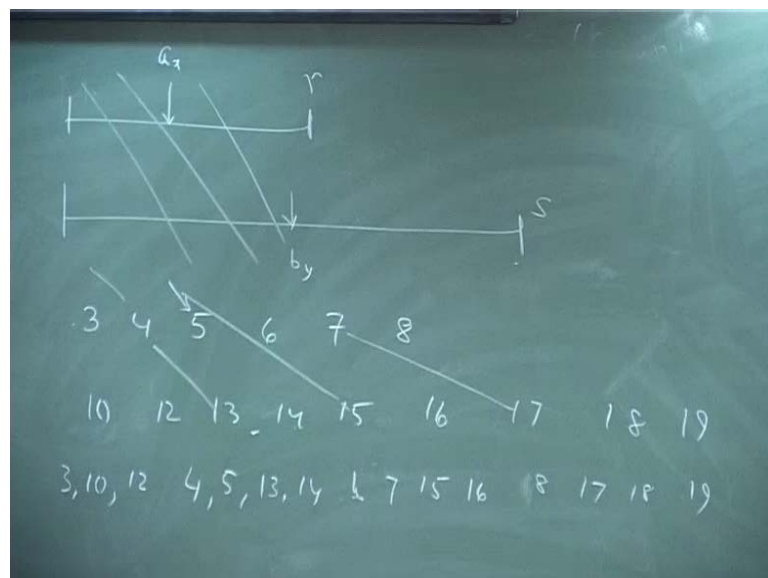 aₓ
r
s
b_y
3 4 5 6 7 8
10 12 13 14 15 16 17 18 19
3, 10, 12 4, 5, 13, 14 7 15 16 8 17 18 19